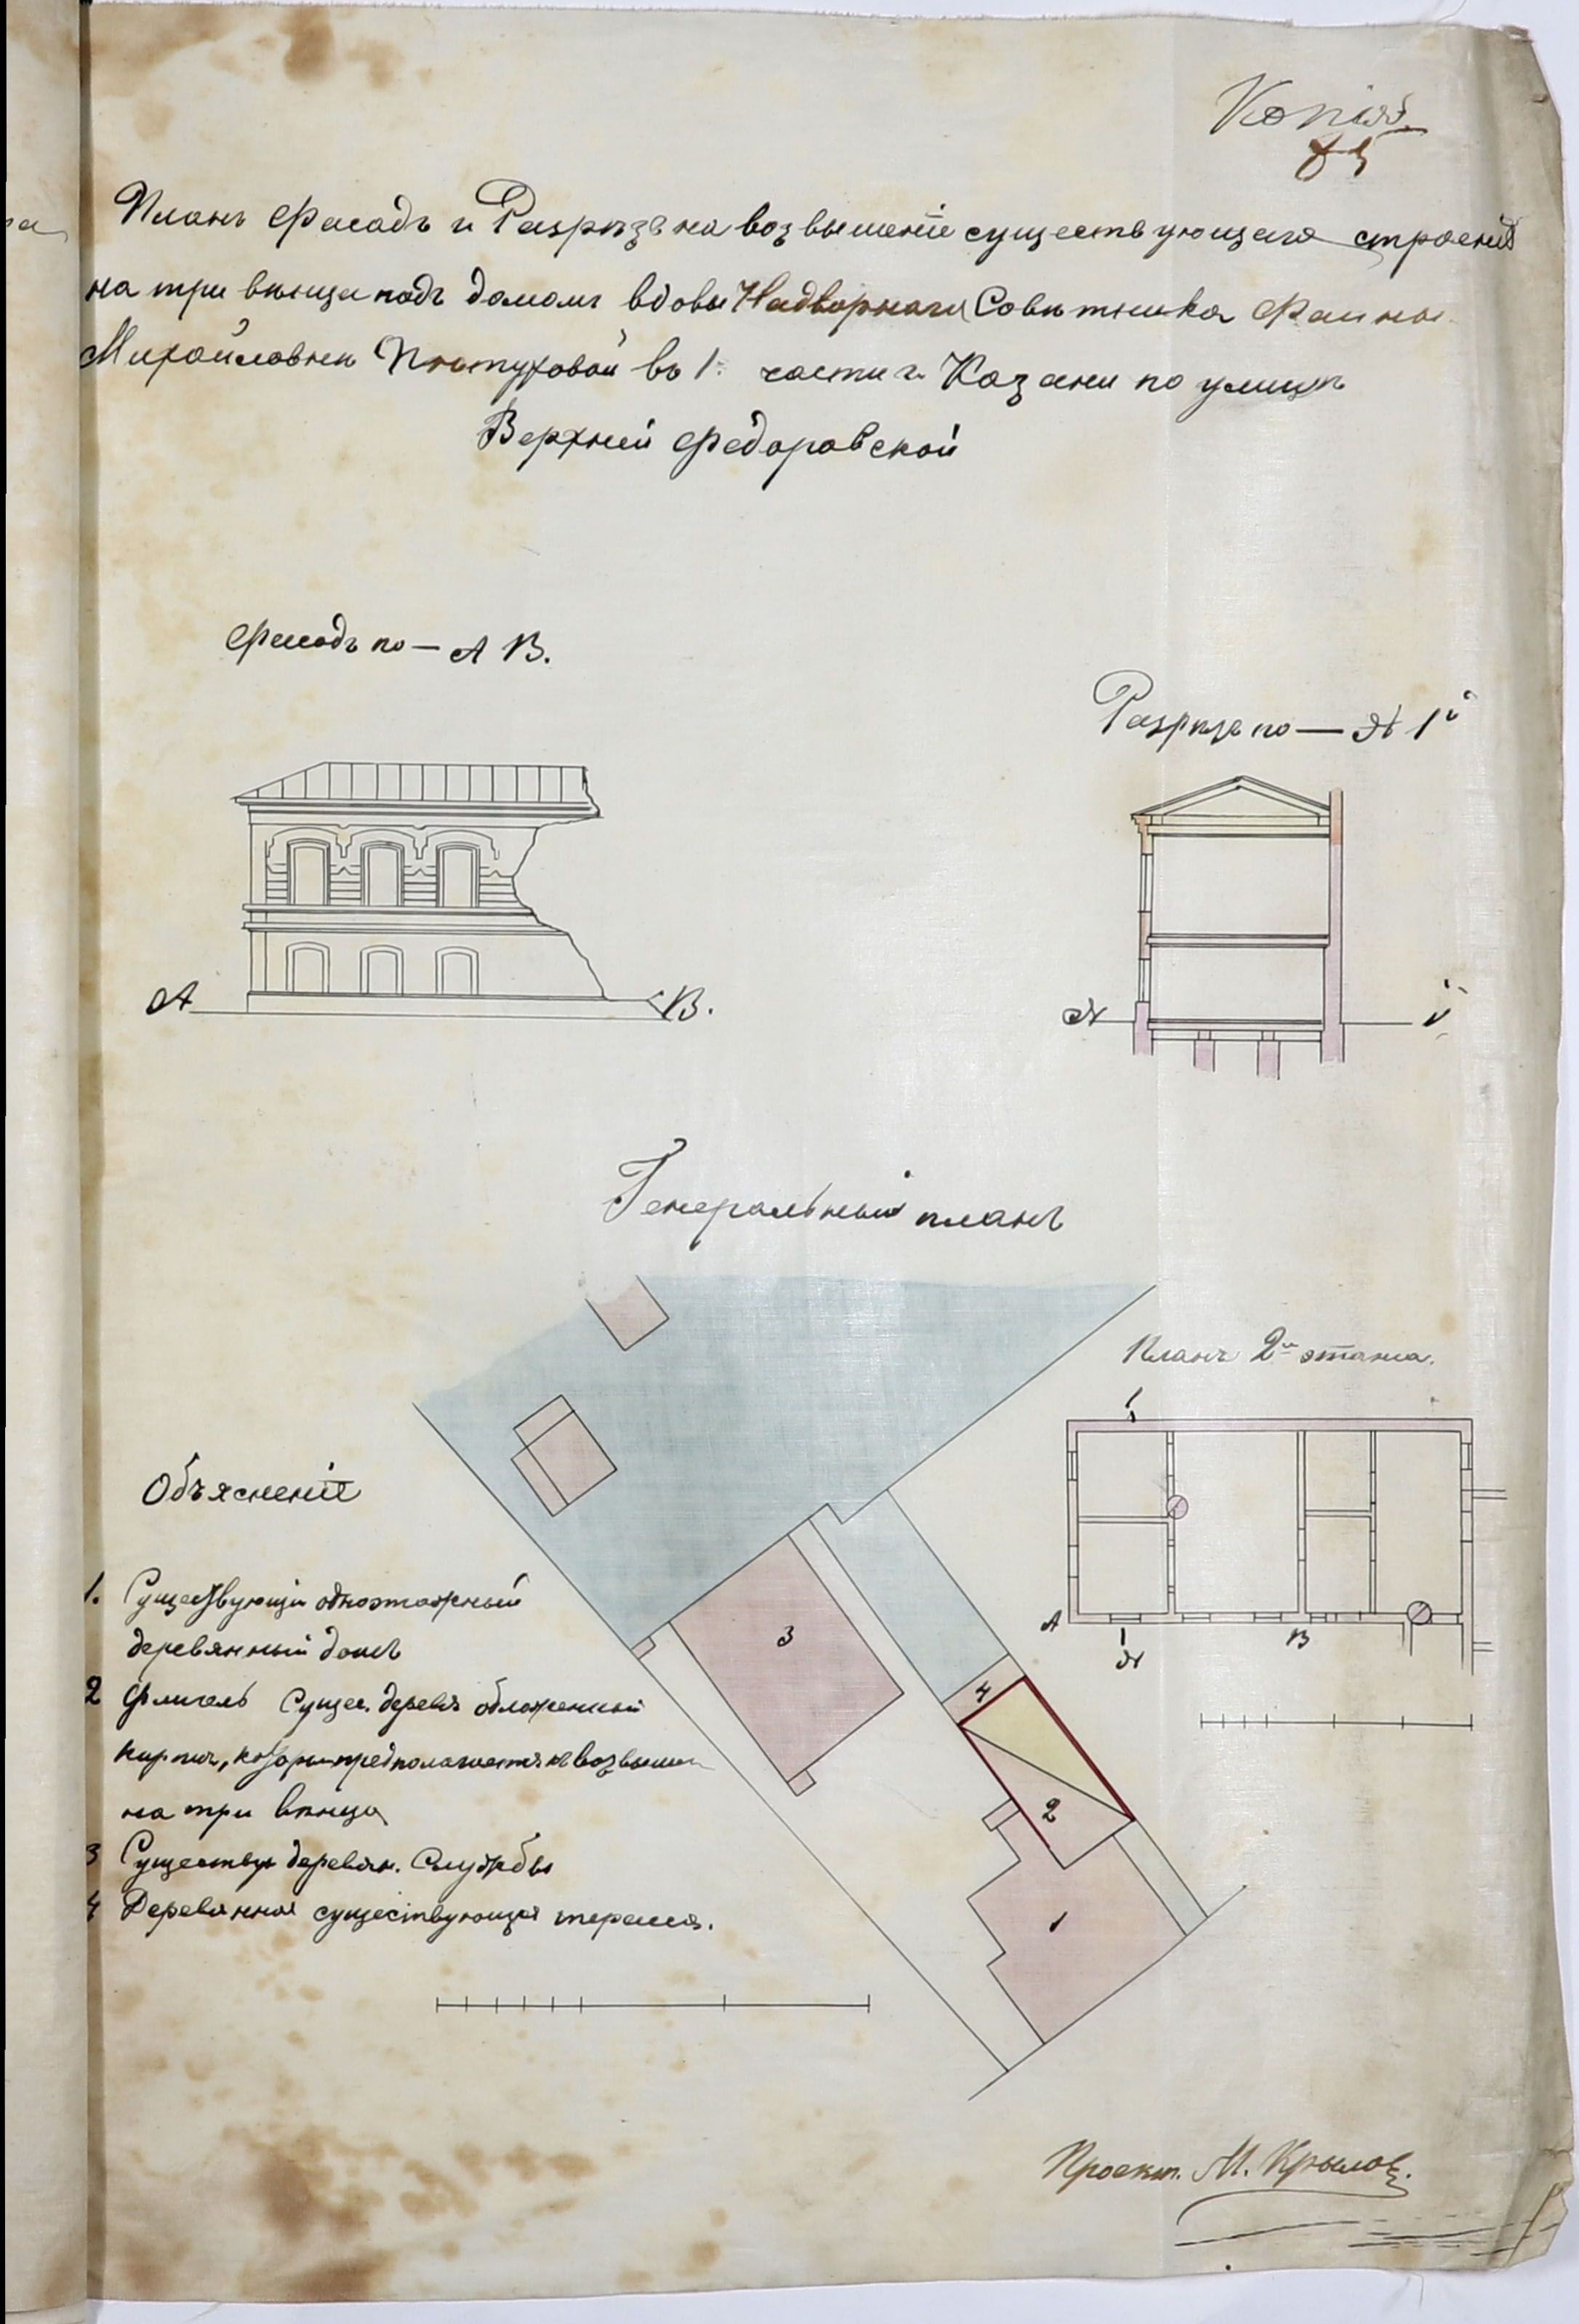 Копія
85
Планъ Фасадъ и Разрѣзъ на возвышеніе существующаго строенія
на три вѣнца подъ домомъ вдовы Надворнаго Совѣтника Фаины
Михайловнѣ Пѣтуховой въ 1. части г. Казани по улицѣ
Верхней Федоровской
Фасадъ по — А В.
Разрѣзъ по —
А
В.
Генеральный планъ
Планъ 2го этажа.
Объясненіе
А
В
1. Существующій одноэтажный
деревянный домъ
2 Флигель Сущес. деревя обложенный
кирпич, который предполагается къ возвыше
на три вѣнца
3 Существую деревян. Службы
4 Деревянная существующая терраса.
3
4
2
1
Проект. М. Крыловъ.